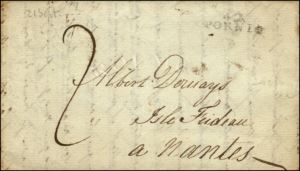 42
PORNIC
2
Albert Dernays
Isle Feideau
a Nantes